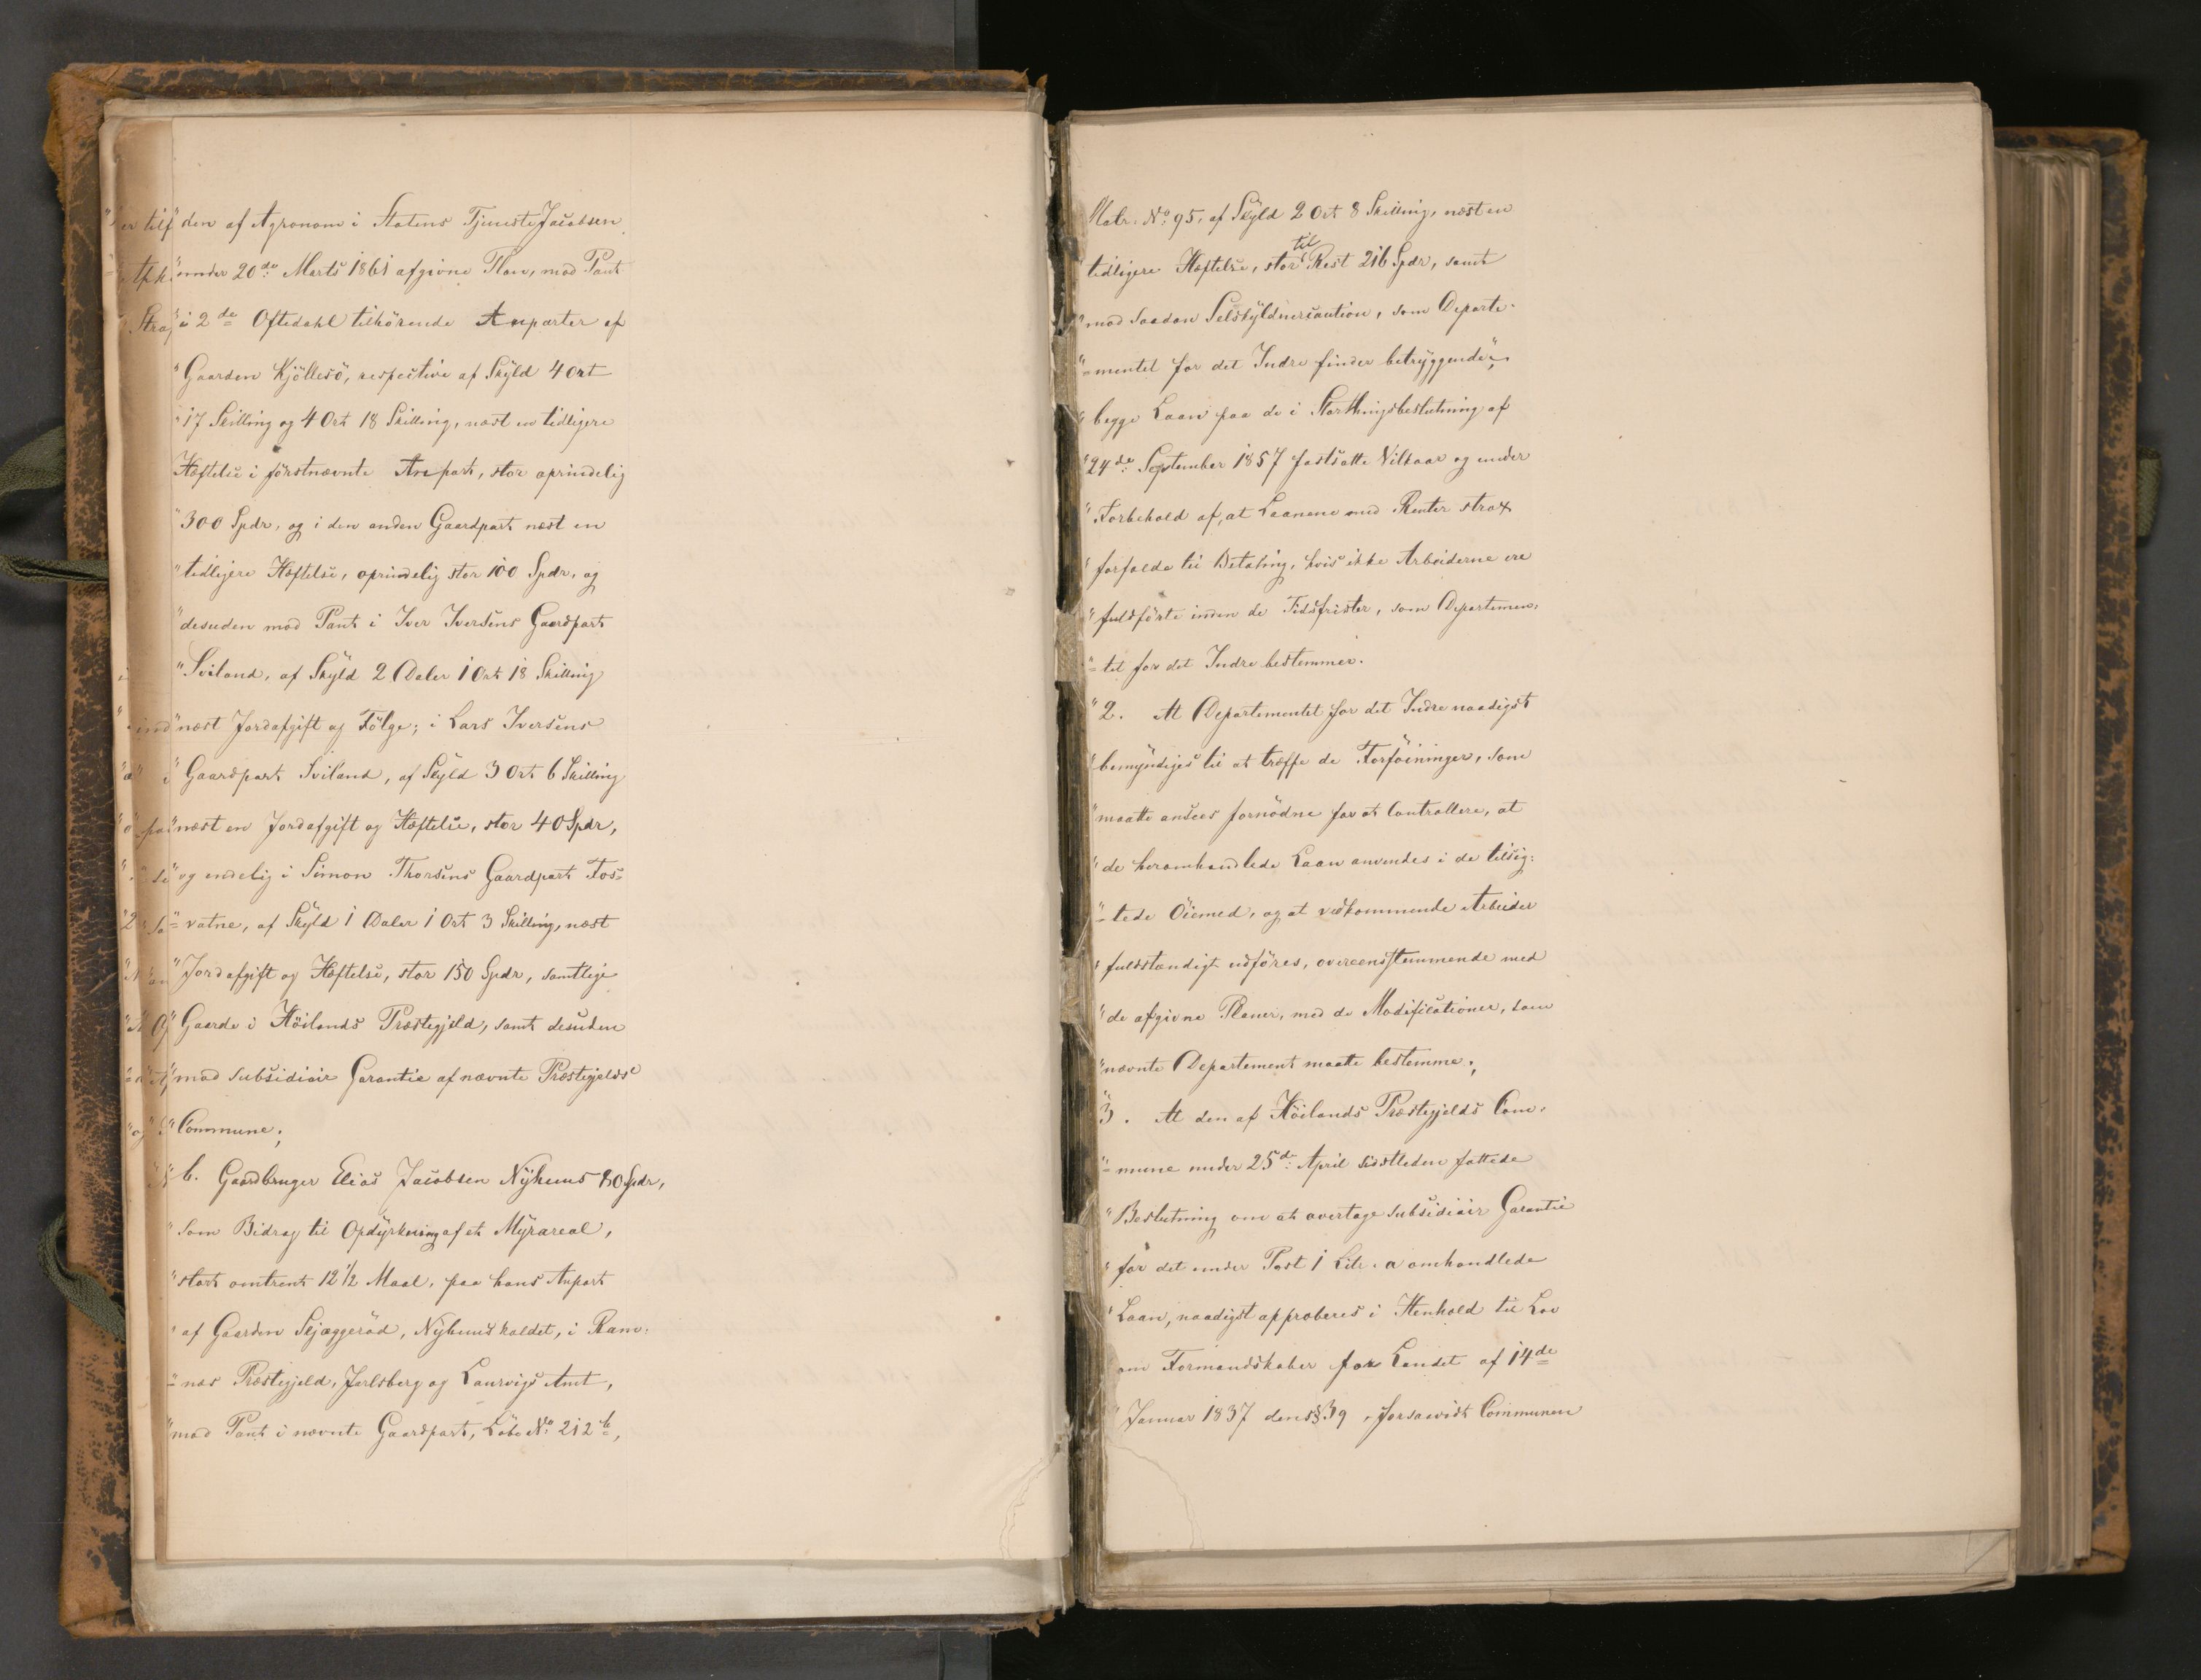 "den af Agronom i Statens Tjeneste Jacobsen
"under 20de Marts 1861 afgivne Plan, mod Pant
"i 2de Oftedahl tilhörende Anparter af
"Gaarden Kjöllesö, respective af Skyld 4 Ort
"17 Skilling og 4 Ort 18 Skilling, næst en tidligere
Hæftelse i förstnævnte Anpart, stor oprindelig
"300 Spdr, og i den anden Gaardpart næst en
"tidligere Hæftelse, oprindelig stor 100 Spdr, og
"desuden mod Pant i Iver Iversens Gaardpart
"Sviland, af Skyld 2 Daler 1 Ort 18 Skilling
"næst Jordafgift og Fölge; i Lars Iversens
"Gaardpart Sviland, af Skyld 3 Ort 6 Skilling
"næst en Jordafgift og Hæftelse, stor 40 Spdr,
"og endelig i Simon Thorsens Gaardpart Fos-
"=vatne, af Skyld 1 Daler 1 Ort 3 Skilling, næst
"Jordafgift og Hæftelse, stor 150 Spdr, samtlige
"Gaarde i Höilands Præstegjeld, samt desuden
"mod subsidiair Garantie af nævnte Præstegjelds
"Commune;
"b. Gaardbruger Elias Jacobsen Nyhuus 80 Spdr,
"som Bidrag til Opdyrkning af et Myrareal,
"stort omtrent 12 1/2 Maal, paa hans Anpart
"af Gaarden Skjæggeröd, Nyhuus kaldet, i Ram-
"=næs Præstegjeld, Jarlsberg og Laurvigs Amt,
"mod Pant i nævnte Gaardpart, Löbe No 212b,
Matr. No 95, af Skyld 2 Ort 8 Skilling, næst en
tidligere Hæftelse, stor til Rest 216 Spdr, samt
"mod saadan Selvskyldnercaution, som Departe-
"=mentet for det Indre finder betryggende",
"begge Laan paa de i Storthingsbeslutning af
"24de September 1857 fastsatte Vilkaar og under
"Forbehold af, at Laanene med Renter strax
"forfalde til Betaling, hvis ikke Arbeiderne ere
"fuldförte inden de Tidsfrister, som Departemen-
"=tet for det Indre bestemmer.
"2. At Departementet for det Indre naadigst
"bemyndiges til at træffe de Forföininger, som
"maatte ansees fornödne for at Controllere, at
"de heromhandlede Laan anvendes i de tilsig-
"=tede Öiemed, og at vedkommende Arbeider
"fuldstændigt udföres, overeensstemmende med
"de afgivne Planer, med de Modificationer, som
"nævnte Departement maatte bestemme;
"3. At den af Höilands Præstegjelds Com-
"=mune under 25de April sidstleden fattede
"Beslutning om at overtage subsidiair Garantie
"for det under Post 1 Litr. a omhandlede
"Laan, naadigst approberes i Henhold til Lov
om Formandskaber for Landet af 14de
"Januar 1837 dens § 39, forsaavidt Communen